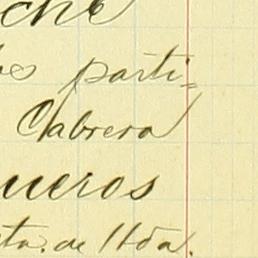 che
os parti-
Cabrera
ueros
ta. de Hda.